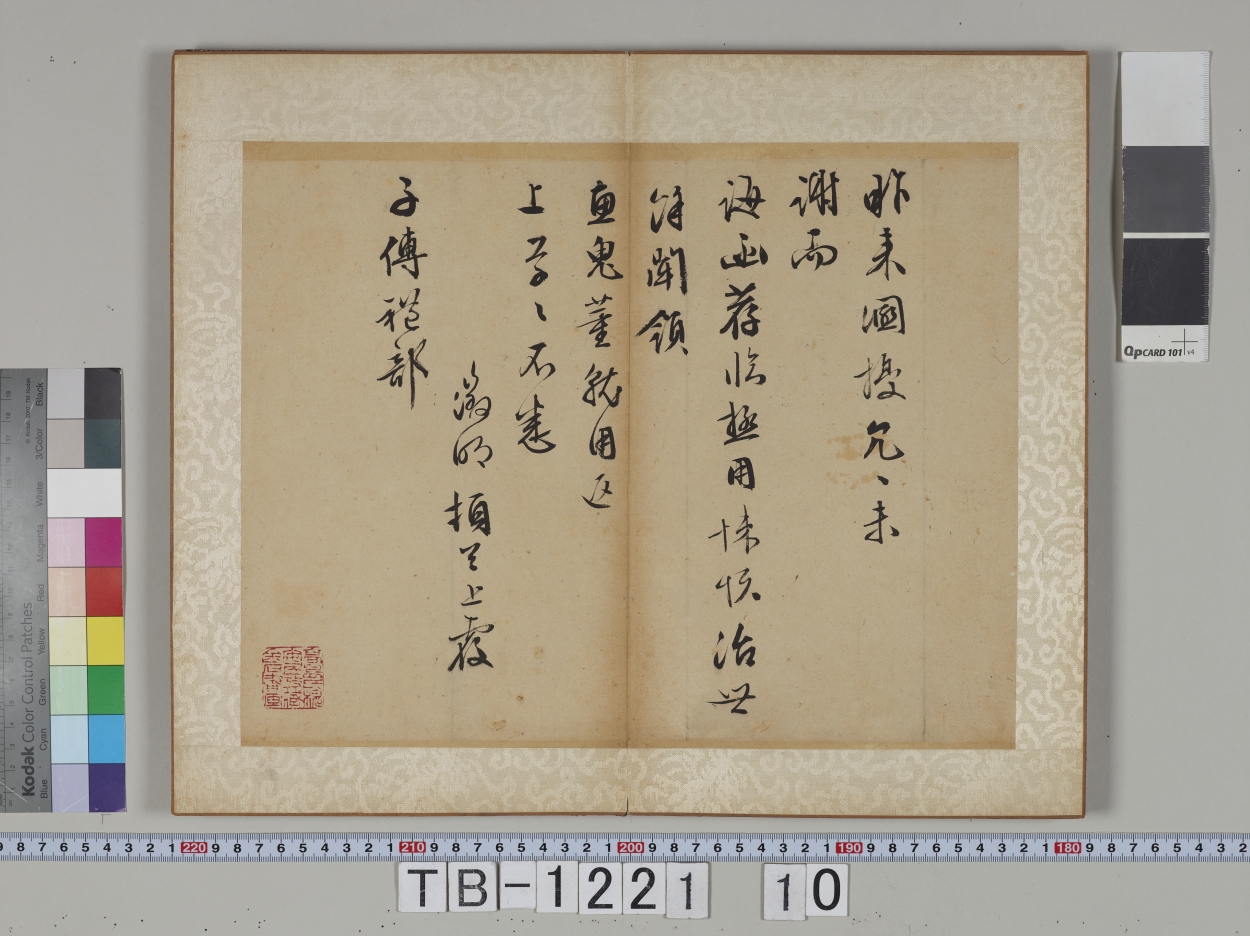 昨来溷擾允〻未
謝而
誨函荐临極用悚仄治世
餘聞領
畫鬼董就用返
上草〻不悉
徵明頓首上覆
子傅禮部
Kodak Color Control Patches
Blue Cyan Green Yellow Red Magenta White 3/Color Black
QpCARD 101 v4
9 8 7 6 5 4 3 2 1 220 9 8 7 6 5 4 3 2 1 210 9 8 7 6 5 4 3 2 1 200 9 8 7 6 5 4 3 2 1 190 9 8 7 6 5 4 3 2 1 180 9 8 7 6 5 4 3 2
TB-1221 10